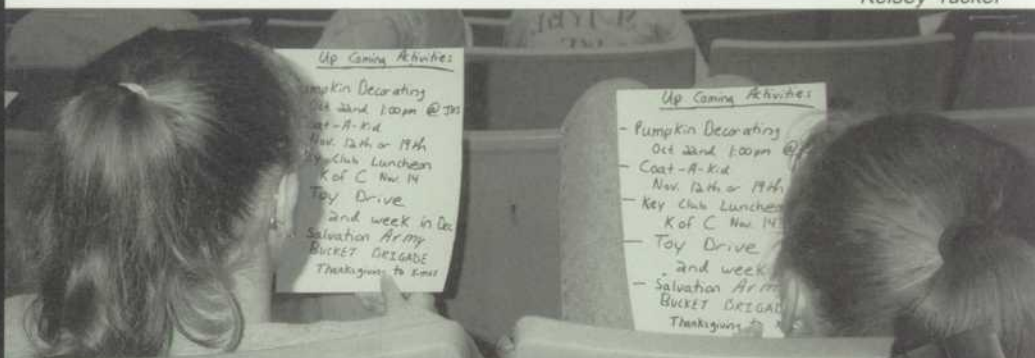 Kelsey Tucker
Up Coming Activities
umpkin Decorating
Oct 22nd 1:00pm @ JVS
oat-A-Kid
Nov. 12th or 19th
Key Club Luncheon
K of C Nov. 14
Toy Drive
2nd week in Dec
Salvation Army
BUCKET BRIGADE
Thanksgiving to X-mas
Up Coming Activities
- Pumpkin Decorating
Oct 22nd 1:00pm @
- Coat-A-Kid
Nov. 12th or 19th
- Key Club Luncheo
K of C Nov. 14
- Toy Drive
2nd week
- Salvation Arm
BUCKET BRIGAD
Thanksgiving to